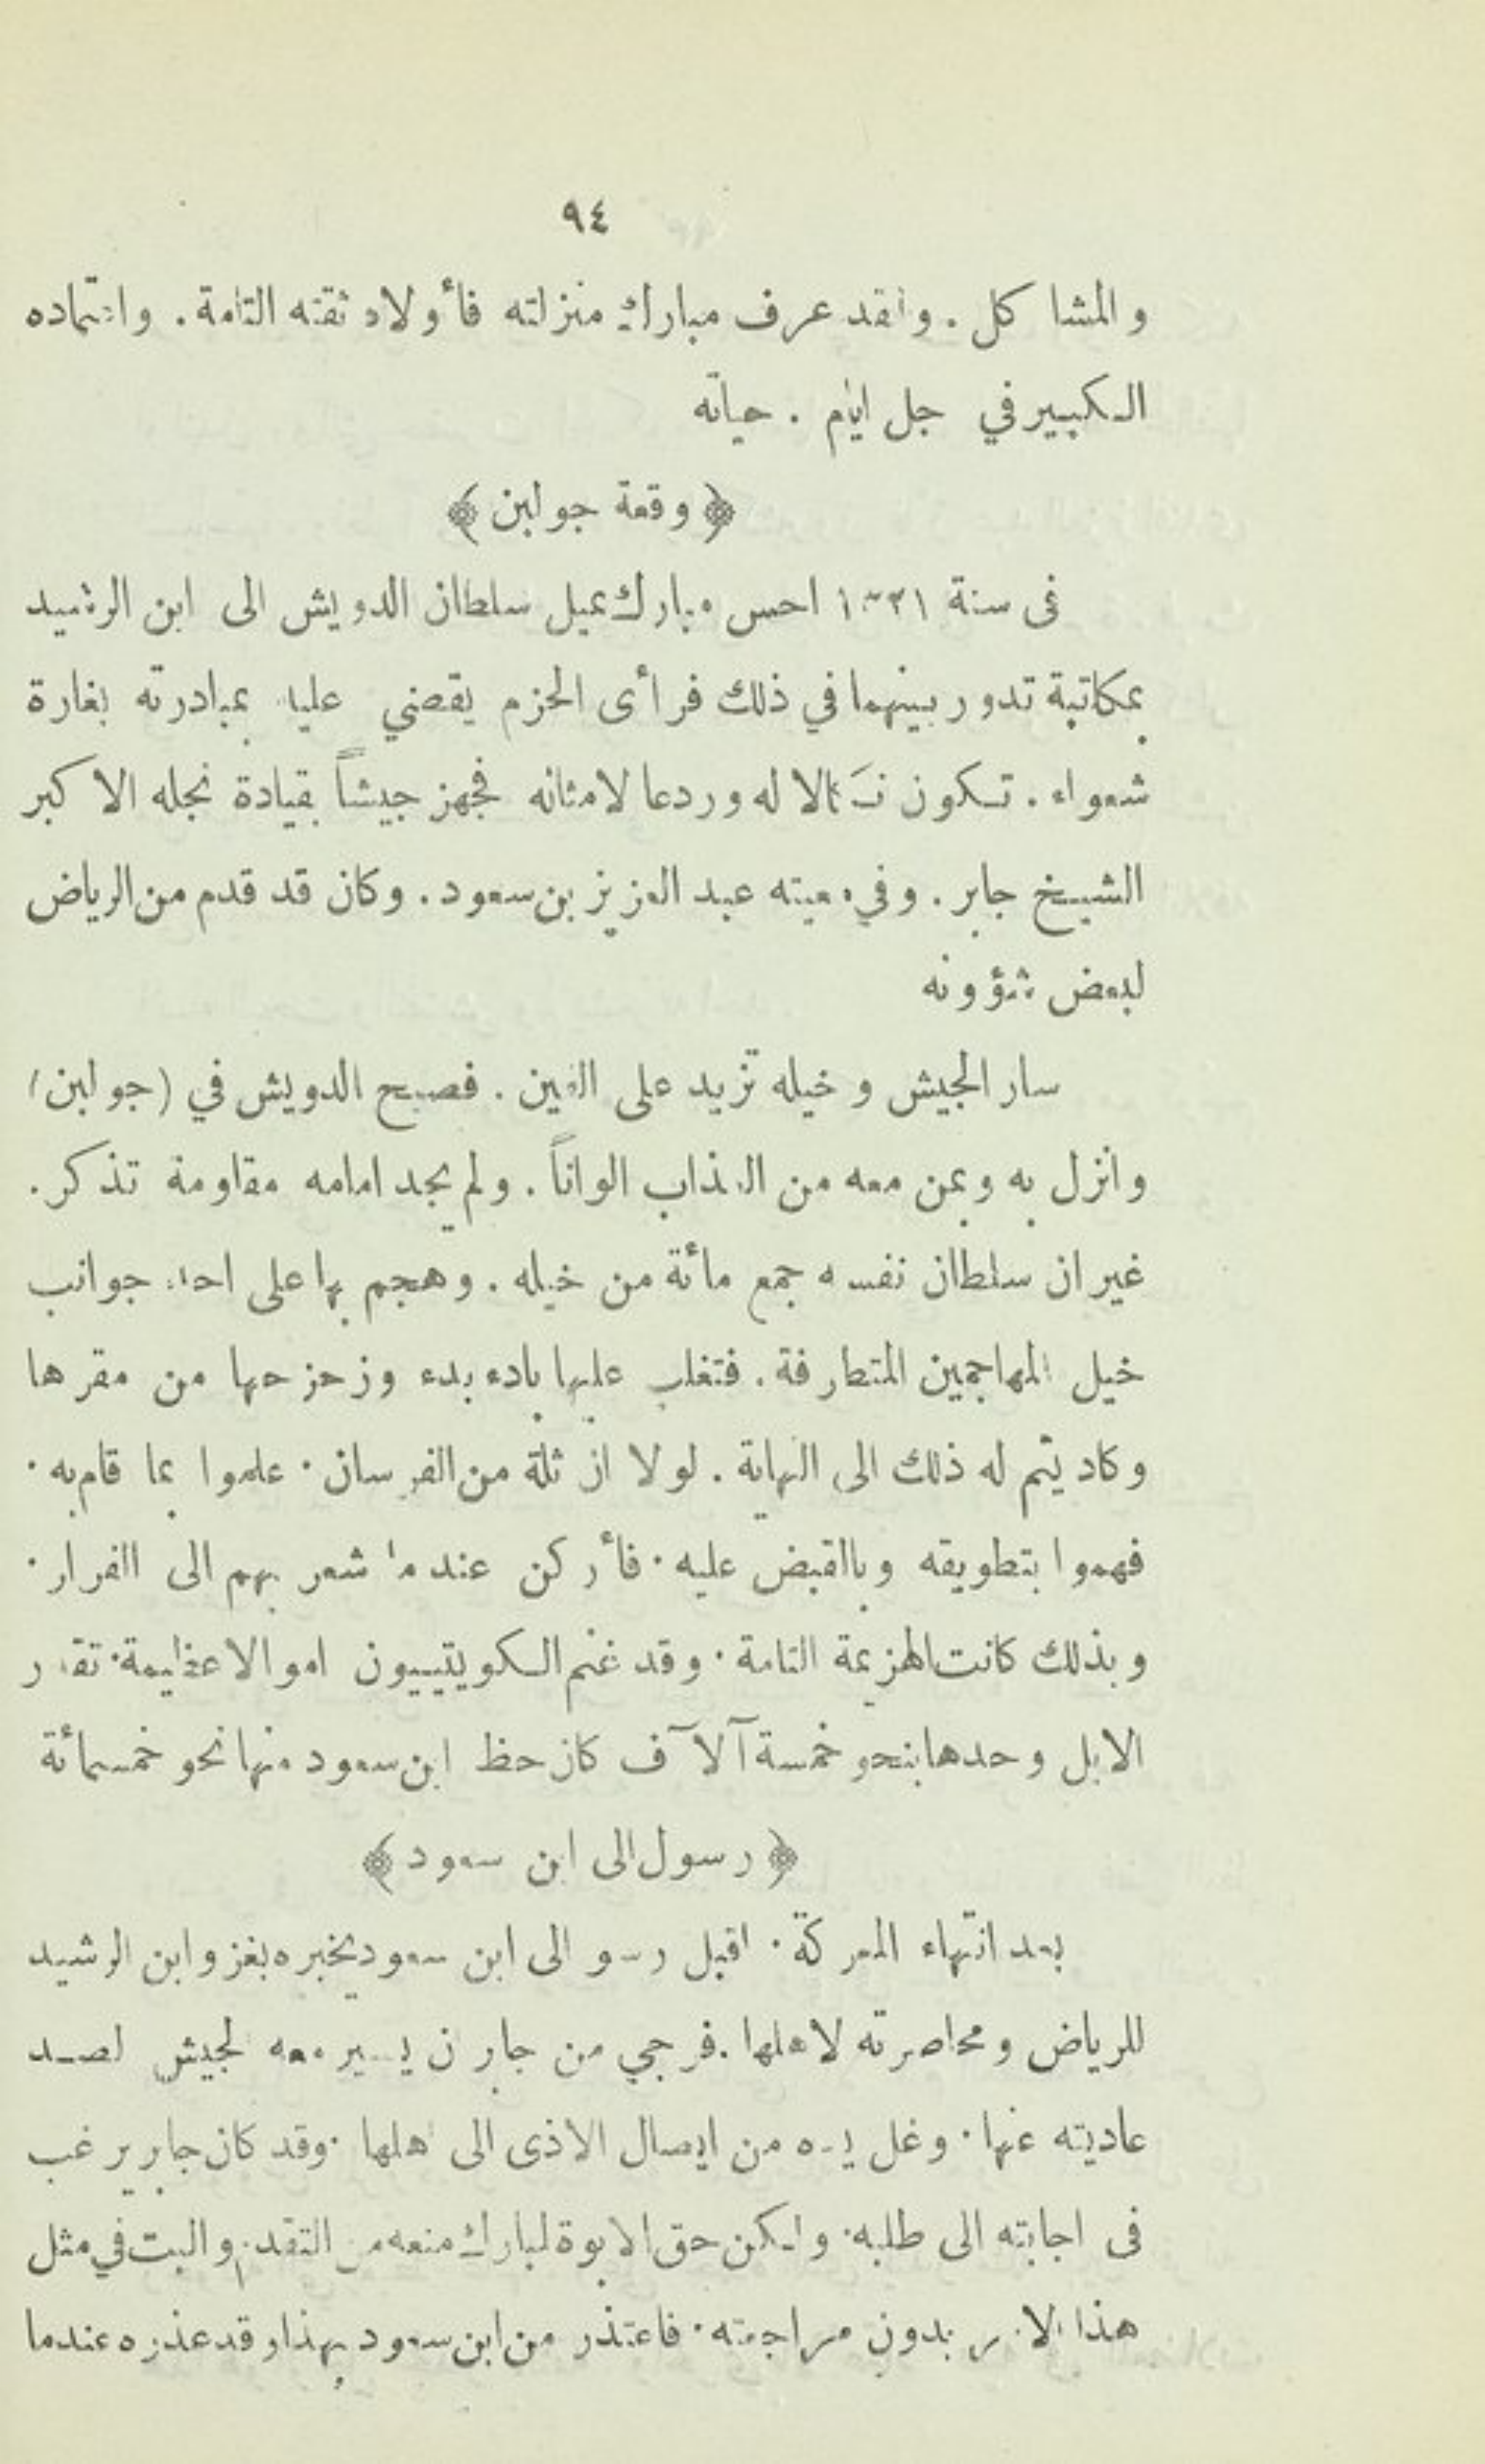 ٩٤
والمشاكل. ولقد عرف مبارك منزلته فأولاه ثقته التامة. واعتماده
الكبير في جل ايام. حياته
﴿وقعة جولبن﴾
فى سنة احس مبارك بميل سلطان الدويش الى ابن الرشيد
بمكاتبة تدور بينهما في ذلك فرأى الحزم يقضي عليه بمبادرته بغارة
شعواء. تكون نكالا له وردعا لامثاله فجهز جيشاً بقيادة نجله الاكبر
الشيخ جابر. وفي معيته عبد العزيز بن سعود. وكان قد قدم من الرياض
لبعض شؤونه
سار الجيش وخيله تزيد على الفين. فصبح الدويش في (جولبن)
وانزل به وبمن معه من العذاب الواناً. ولم يجد امامه مقاومة تذكر.
غير ان سلطان نفسه جمع مائة من خيله. وهجم بها على احد جوانب
خيل المهاجمين المتطارفة. فتغلب عليها باده بدء وزحزحها من مقرها
وكاد يتم له ذلك الى النهاية. لولا ان ثلة من الفرسان. علموا بما قام به.
فهموا بتطويقه وبالقبض عليه. فأركن عندما شعر بهم الى الفرار.
وبذلك كانت الهزيمة التامة. وقد غنم الكويتييون اموالا عظيمة. تقدر
الابل وحدها بنحو خمسة آلآف كان حظ ابن سعود منها نحو خمسمائة
﴿رسول الى ابن سعود﴾
بعد انتهاء المعركة. اقبل رسو الى ابن سعود يخبره بغزو ابن الرشيد
للرياض ومحاصرته لاهلها. فرجي من جابر ن يسير معه لجيش لصد
عاديته عنها. وغل يده من ايصال الاذى الى اهلها. وقد كان جابر يرغب
فى اجابته الى طلبه. ولكن حق الابوة لمبارك منعه من التقدم والبت في مثل
هذا الامر بدون مراجعته. فاعتذر من ابن سعود بهذا وقد عذره عندما